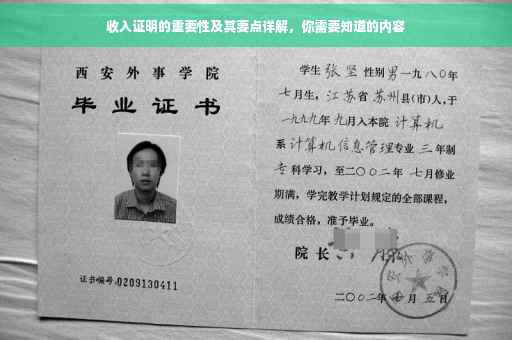 收入证明的重要性及其要点详解，你需要知道的内容
西安外事学院
毕业证书
证书编号:0209130411
学生 张坚 性别 男 一九八〇年
七月生，江苏省 苏州县(市)人,于
一九九九年 九月入本院 计算机
系 计算机信息管理专业 三 年制
专科学习，至二〇〇二年 七月修业
期满，学完教学计划规定的全部课程，
成绩合格，准予毕业。
院长
二〇〇二年 月 五日